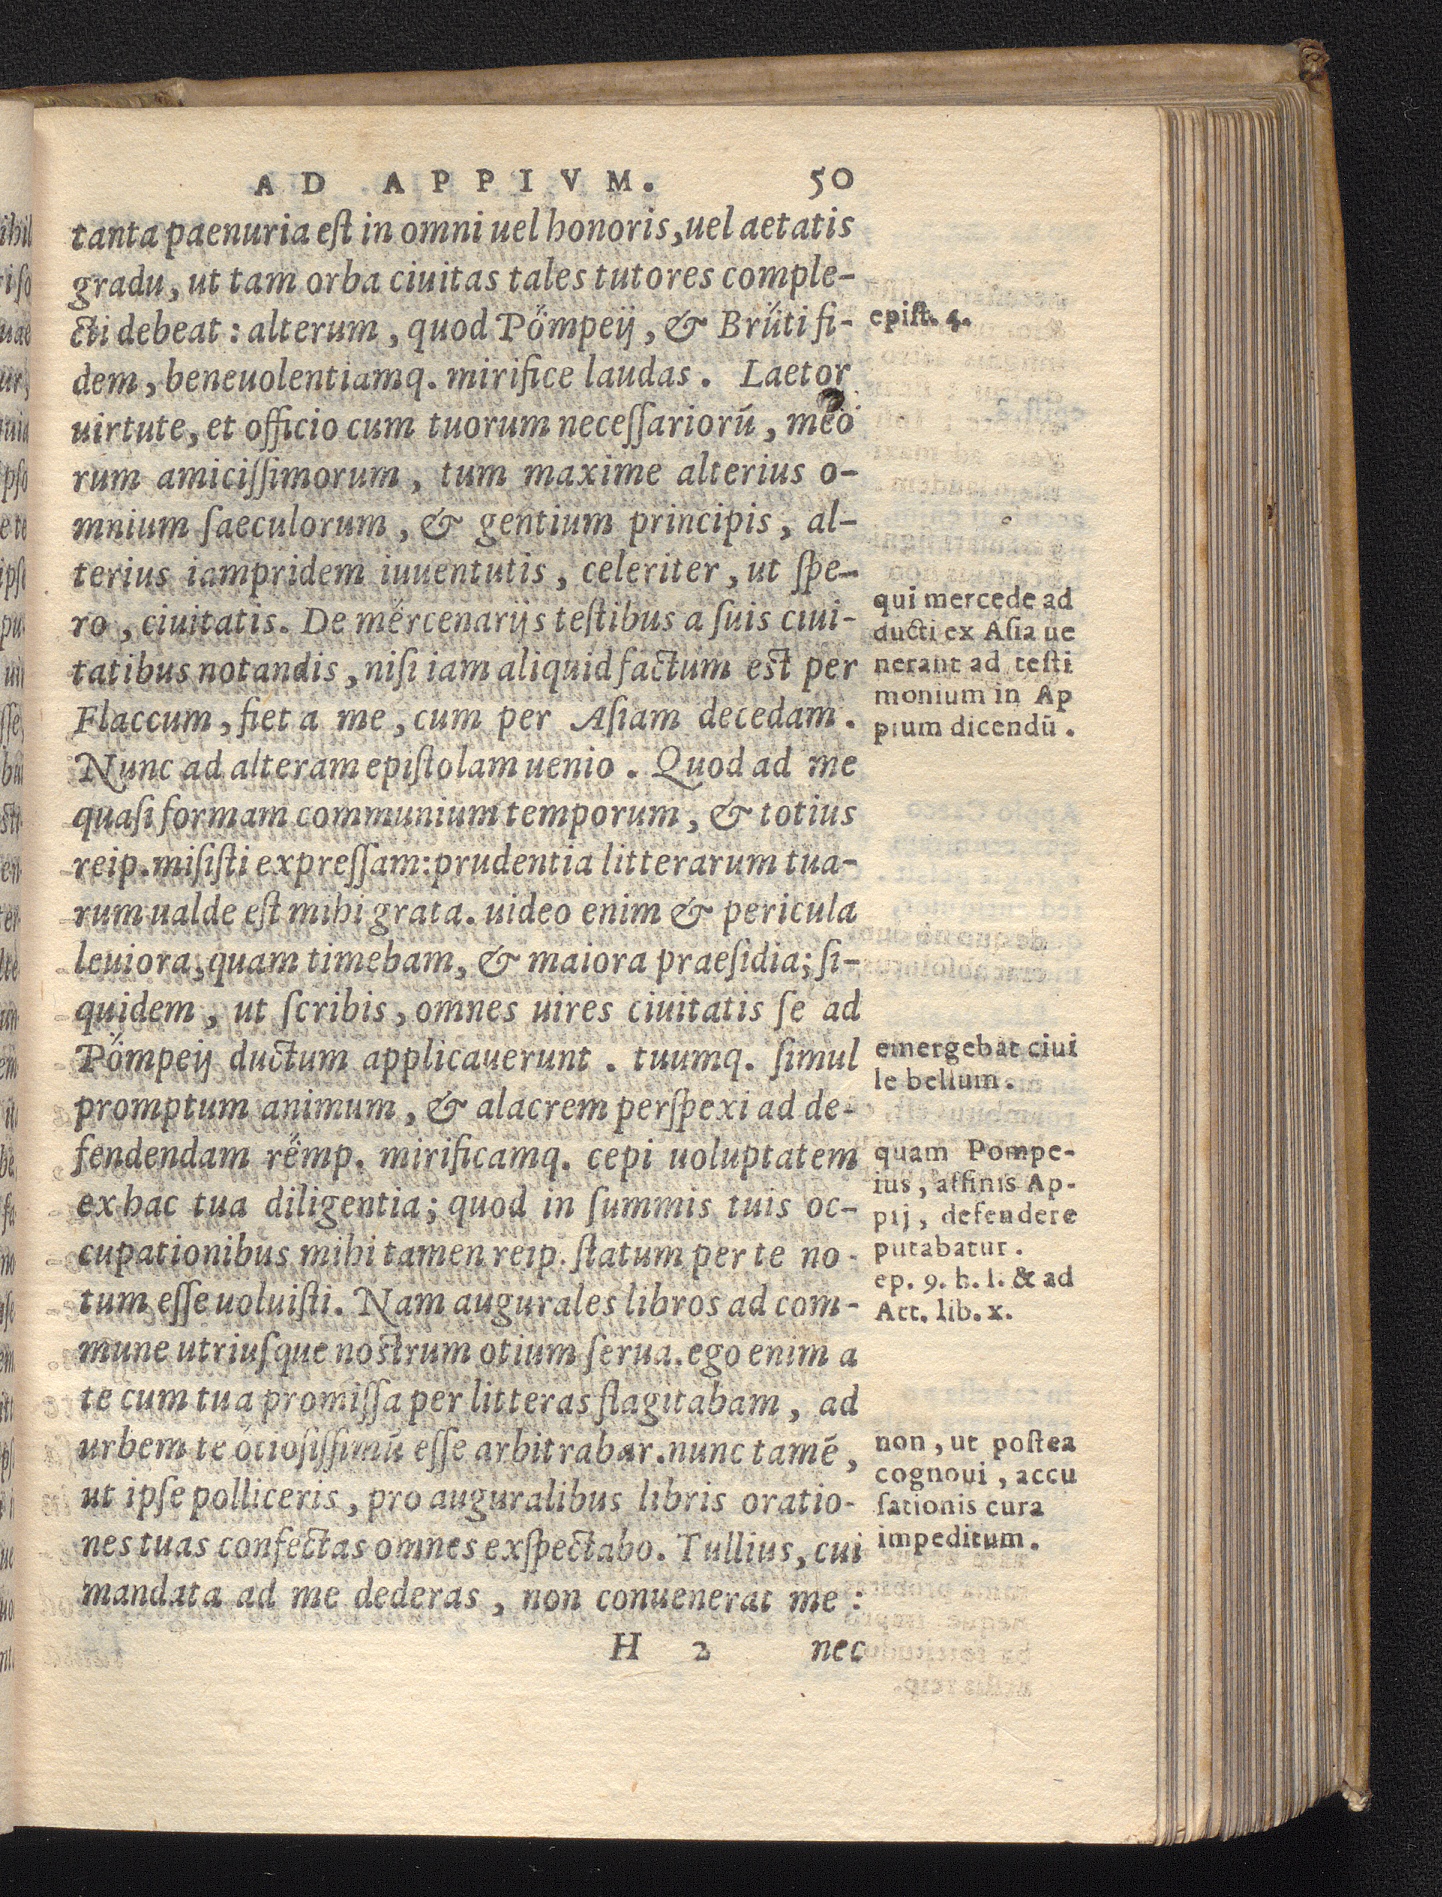 AD APPIVM. 50
tanta paenuria est in omni uel honoris, uel aetatis
gradu, ut tam orba ciuitas tales tutores comple-
cti debeat: alterum, quod Pömpeij, & Brüti fi-
dem, beneuolentiamq. mirifice laudas. Laetor
uirtute, et officio cum tuorum necessariorū, meo
rum amicissimorum, tum maxime alterius o-
mnium saeculorum, & gentium principis, al-
terius iampridem iuuentutis, celeriter, ut spe-
ro, ciuitatis. De mërcenarijs testibus a suis ciui-
tatibus notandis, nisi iam aliquid factum est per
Flaccum, fiet a me, cum per Asiam decedam.
Nunc ad alteram epistolam uenio. Quod ad me
quasi formam communium temporum, & totius
reip. misisti expressam: prudentia litterarum tua-
rum ualde est mihi grata. uideo enim & pericula
leuiora, quam timebam, & maiora praesidia; si-
quidem, ut scribis, omnes uires ciuitatis se ad
Pömpeij ductum applicauerunt. tuumq. simul
promptum animum, & alacrem perspexi ad de-
fendendam rëmp. mirificamq. cepi uoluptatem
ex hac tua diligentia; quod in summis tuis oc-
cupationibus mihi tamen reip. statum per te no-
tum esse uoluisti. Nam augurales libros ad com-
mune utriusque nostrum otium serua. ego enim a
te cum tua promissa per litteras flagitabam, ad
urbem te ötiosissimū esse arbitrabar. nunc tamē,
ut ipse polliceris, pro auguralibus libris oratio-
nes tuas confectas omnes exspectabo. Tullius, cui
mandata ad me dederas, non conuenerat me:
H 2 nec
epist. 4.
qui mercede ad
ducti ex Asia ue
nerant ad testi
monium in Ap
pium dicendū.
emergebat ciui
le bellum.
quam Pompe-
ius, affinis Ap-
pij, defendere
putabatur.
ep. 9. h. l. & ad
Att. lib. x.
non, ut postea
cognoui, accu
sationis cura
impeditum.